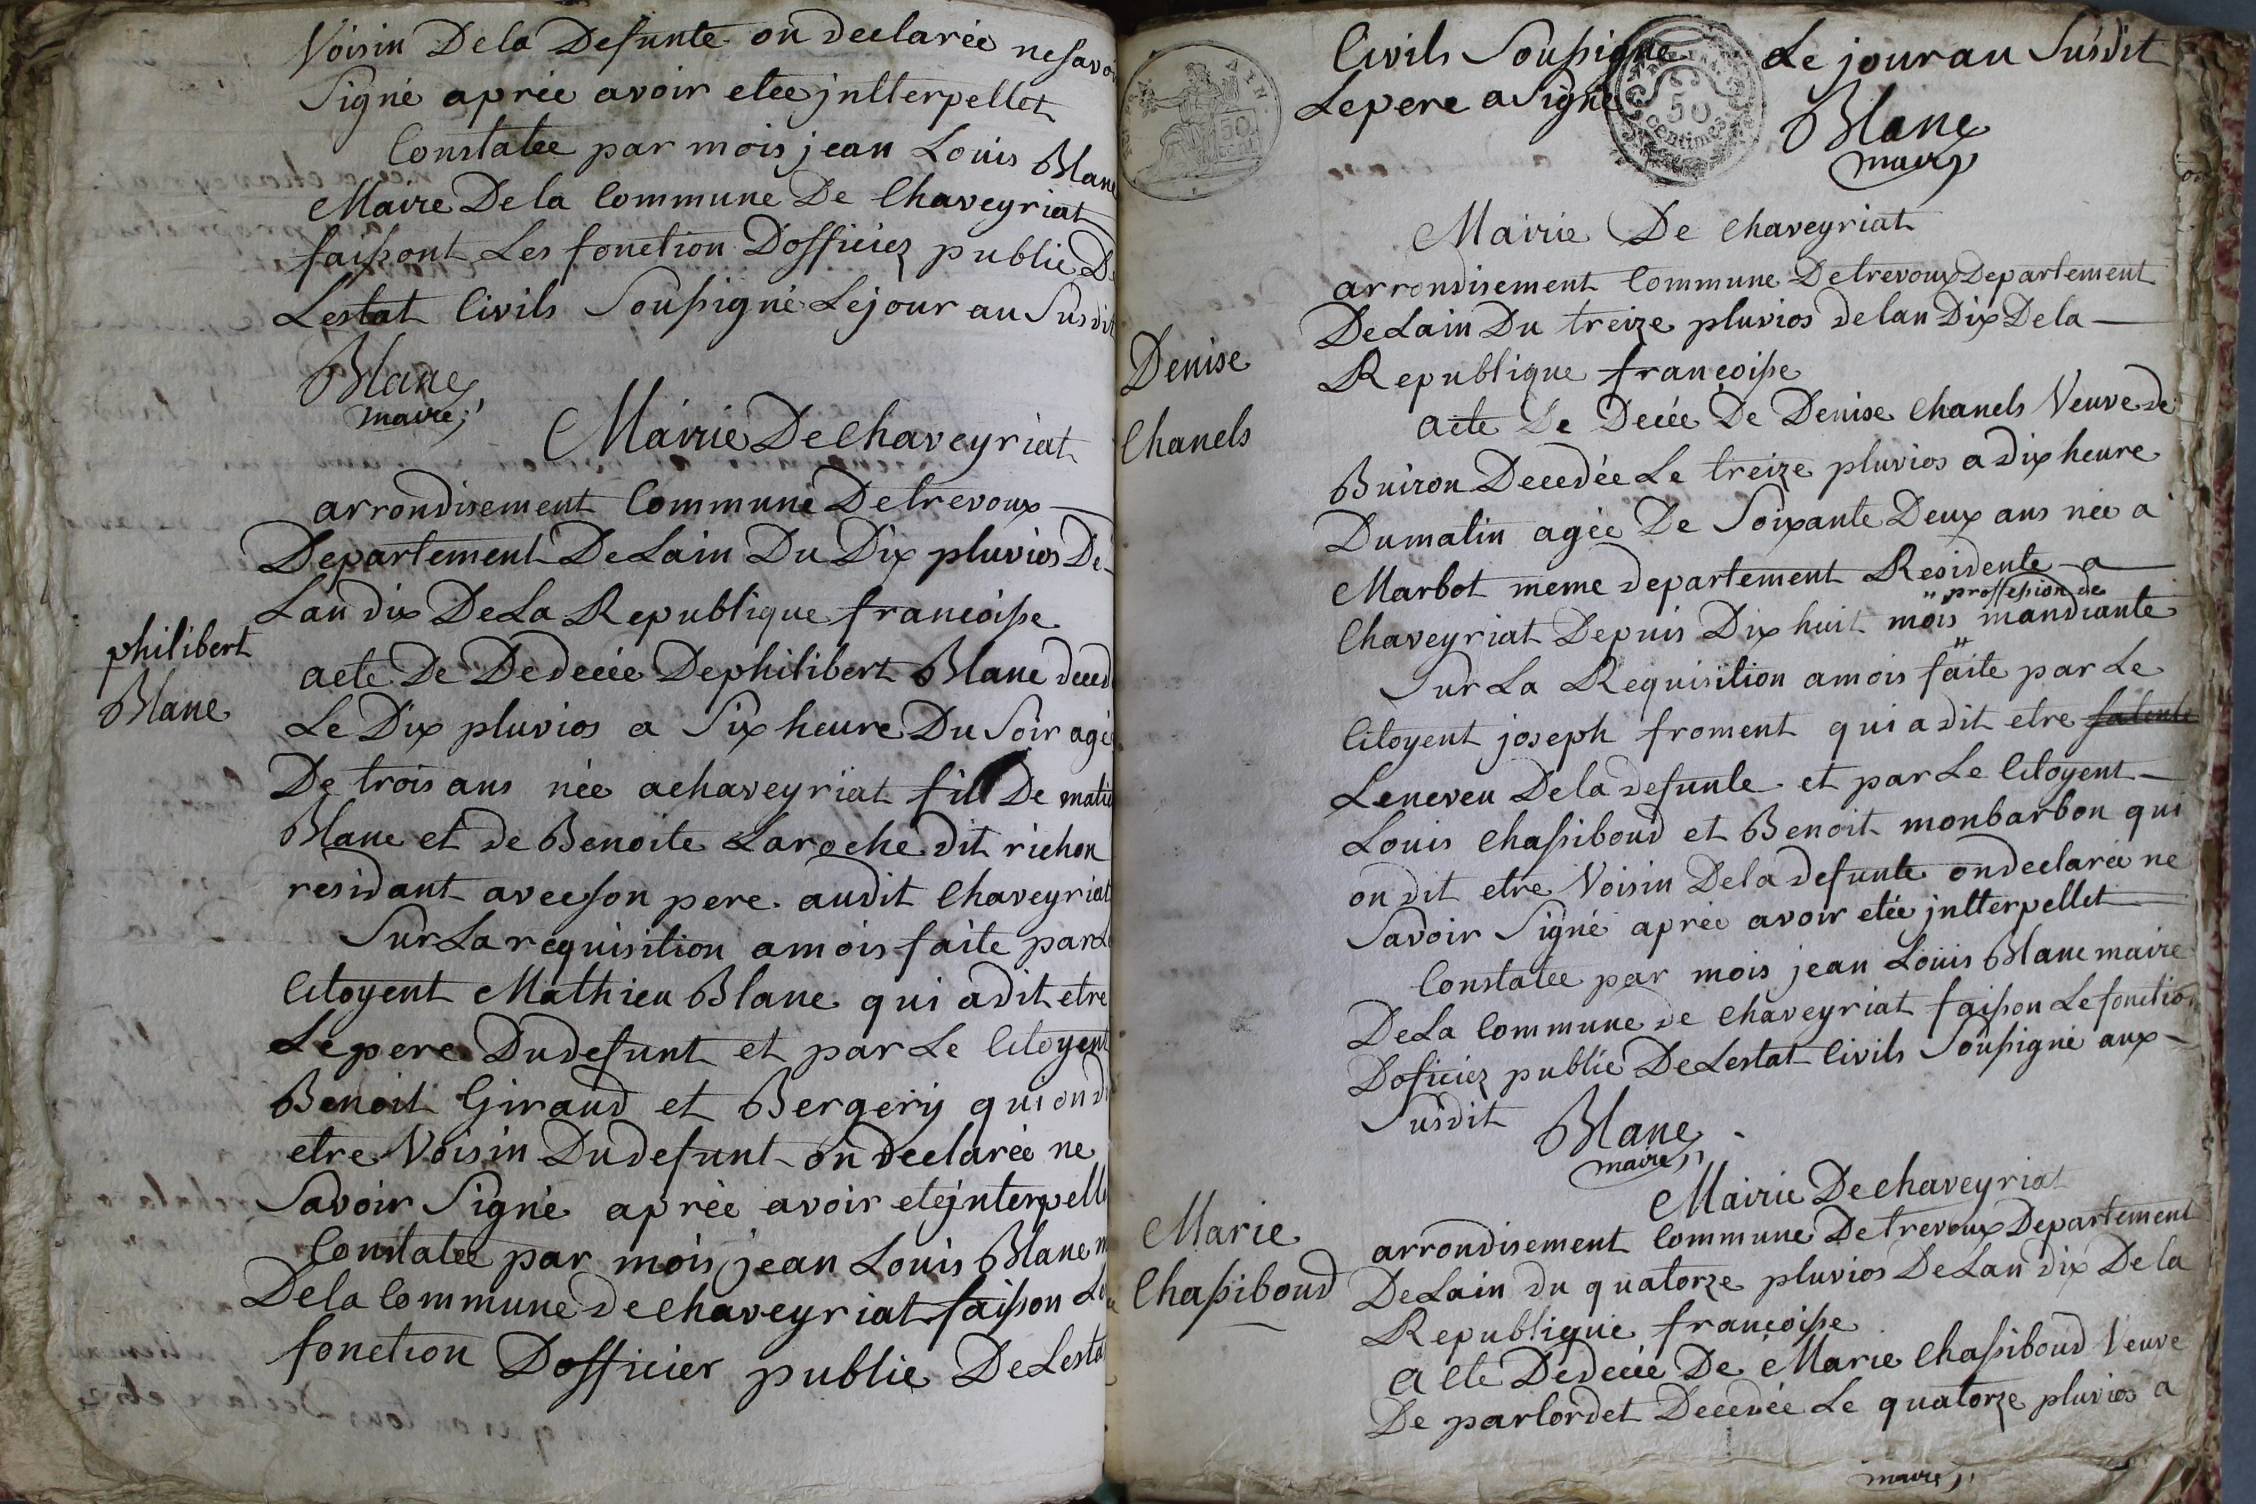 Voisin De la Defunte on declarée ne savo
Signé aprée avoir etée jntterpellet
Constatée par mois jean Louis Blanc
Maire De la Commune De Chaveyriat
faissont Les fonction Dofficiez public D
Lestat Civils Soussigné Le jour au Susdit
Blanc
maire
Mairie De Chaveyriat
arrondisement Commune De trevoux
Departement De Lain Du Dix pluvios De
Lan dix De La Republique francoisse
philibert
Blanc
acte De Dedecée De philibert Blanc deced
Le Dix pluvios a Six heure Du Soir agé
De trois ans née a chaveyriat fil De matie
Blanc et de Benoite Laroche dit richon
residant avec son pere audit Chaveyriat
Sur La requisition a mois faite par L
Citoyent Mathieu Blanc qui a dit etre
Le pere Du defunt et par Le Citoyent
Benoit Giraud et Bergery qui on di
etre Voisin Du defunt on declarée ne
Savoir Signé aprée avoir eté jnterpelle
Constatée par mois jean Louis Blanc m
De la Commune de chaveyriat faisson Le
fonction Dofficier public De Lestat
Civils Soussigné Le jour au Susdit
Le pere a Signé
50
centimes
Blanc
maire
Mairie De chaveyriat
arrondisement Commune De trevoux Departement
De Lain Du treize pluvios de lan Dix De la
Republique francoisse
Denise
Chanels
acte De Decée De Denise Chanels Veuve de
Buiron Decedée Le treize pluvios a dix heure
Du matin agée De Soixante Deux ans née a
Marbot meme departement Residente a
" proffession de
Chaveyriat Depuis Dix huit mois mandiante
Sur La Requisition a mois faite par Le
Citoyent joseph froment qui a dit etre
Le neveu De la defunte et par Le Citoyent
Louis Chassiboud et Benoit monbarbon qui
on dit etre Voisin De la defunte on declarée ne
Savoir Signé aprée avoir etée jntterpellet
Constatée par mois jean Louis Blanc maire
De La Commune de Chaveyriat faisson Le fonction
Doficiez public De Lestat Civils Soussigné aux
Susdit
Blanc
maire
Mairie De chaveyriat
Marie
Chassiboud
arrondisement Commune De trevoux Departement
De Lain du quatorze pluvios De Lan dix De la
Republique francoisse
acte De decée De Marie Chassiboud Veuve
De parlordet Decedée Le quatorze pluvios a
maire